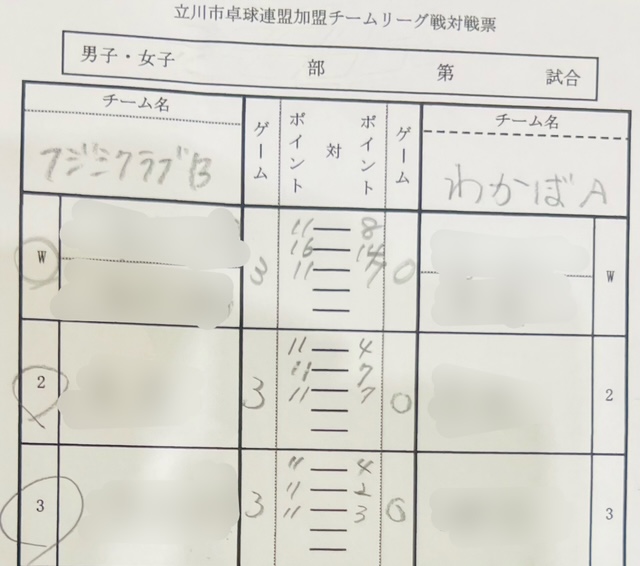 立川市卓球連盟加盟チームリーグ戦対戦票
男子・女子 部 第 試合
チーム名 ゲーム ポイント 対 ポイント ゲーム チーム名
フジミクラブB わかばA
W 3 0 W
11 — 8
16 — 14
11 — 7
—
—
2 3 0 2
11 — 4
11 — 7
11 — 7
—
—
3 3 0 3
11 — 4
11 — 2
11 — 3
—
—